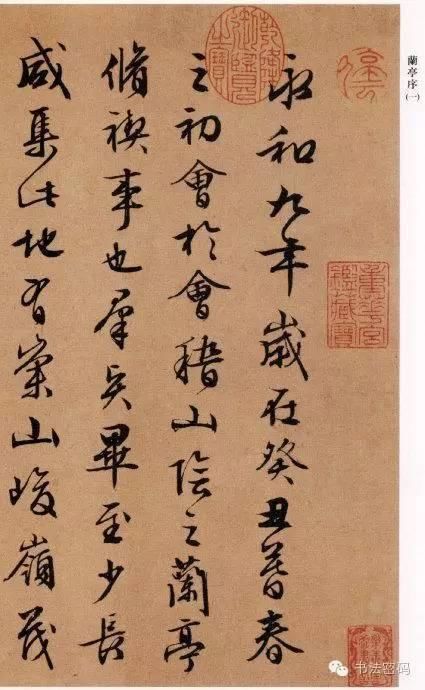 蘭亭序
(一)
永和九年歲在癸丑暮春
之初會於會稽山陰之蘭亭
脩禊事也羣賢畢至少長
咸集此地有崇山峻嶺茂
重華宮
鑑藏寶
书法密码